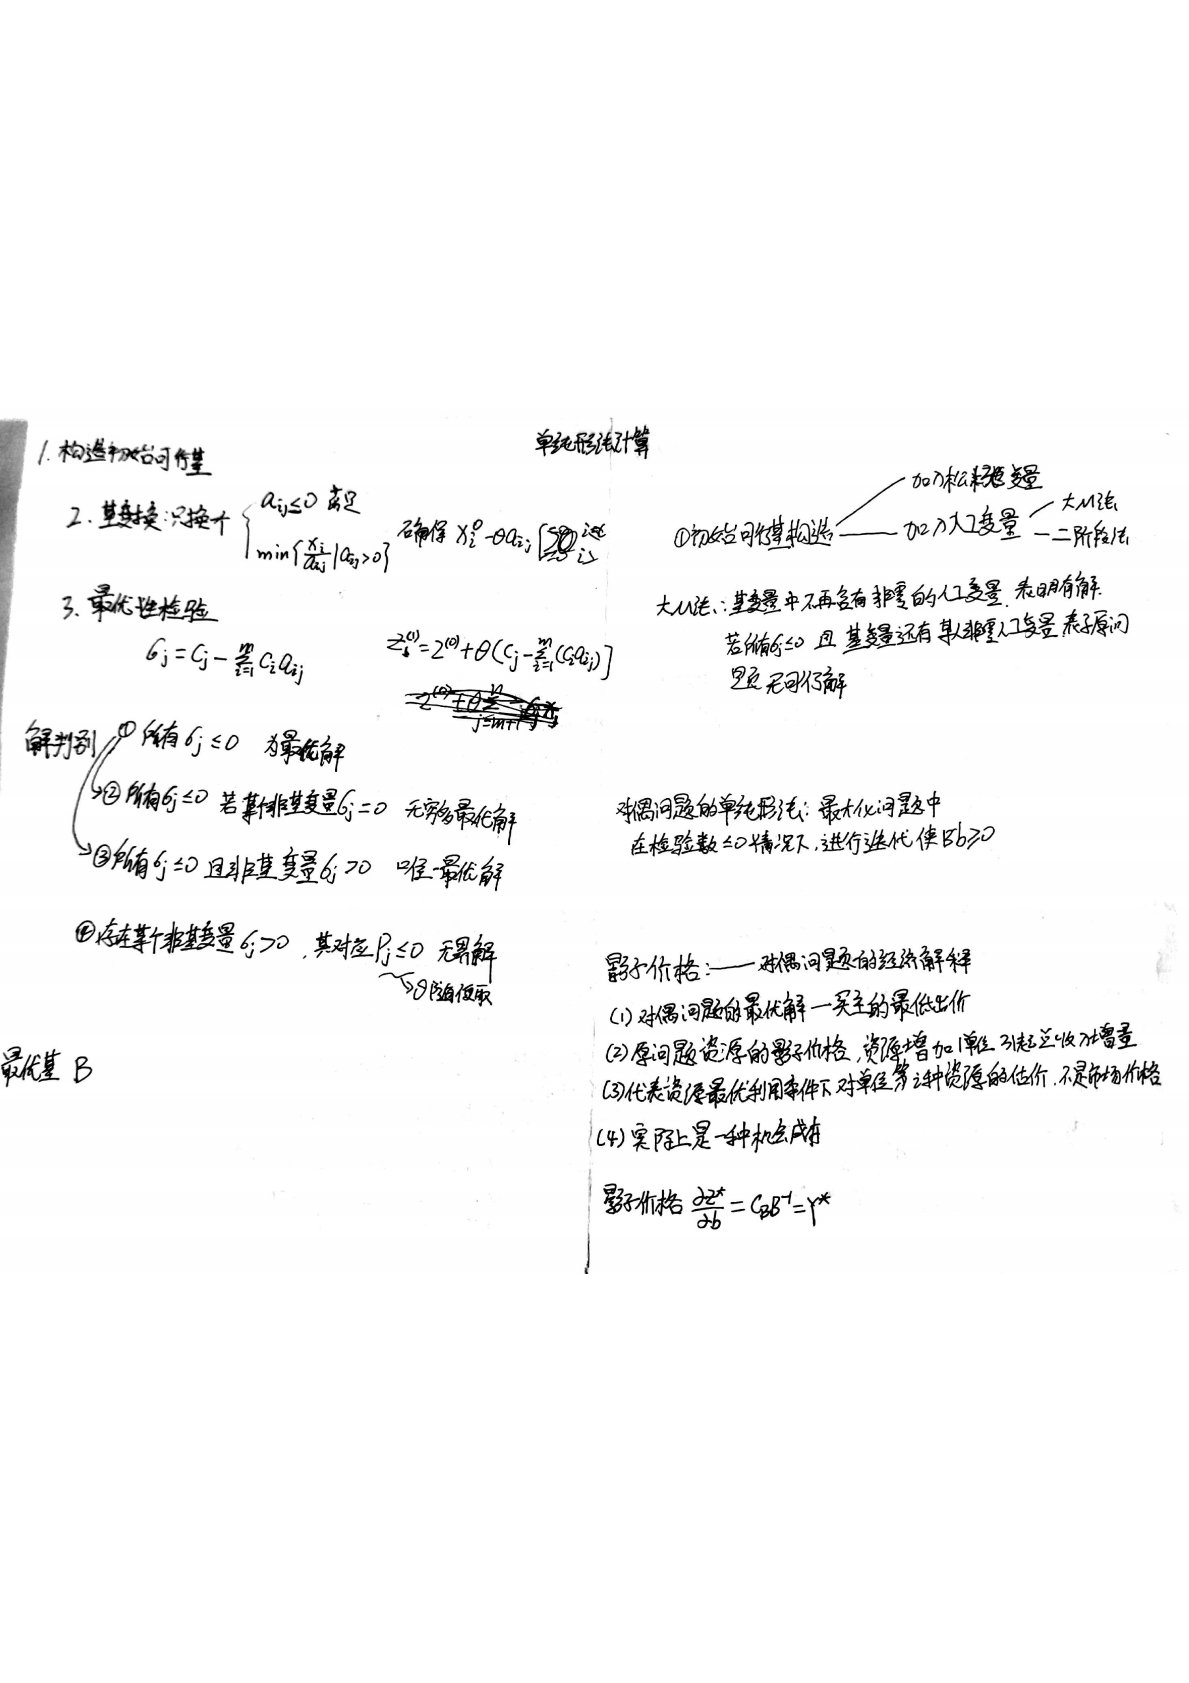 单纯形法计算
1. 构造初始可行基
2. 基变换:只换一个 { aij≤0 满足
min{xi/aij | aij>0}
确保 xi⁰-θaij
3. 最优性检验
σj = cj - Σ(i=1→m) ci aij
z⁽¹⁾ = z⁽⁰⁾ + θ(cj - Σ(i=1→m)(ci aij)]
解判别 ① 所有σj≤0 为最优解
②所有σj≤0 若某个非基变量σj=0 无穷多最优解
③所有σj≤0 且非基变量σj>0 唯一最优解
④存在某个非基变量σj>0,其对应Pj≤0 无界解
θ随便取
最优基 B
①初始可行基构造
加入松弛变量
加入人工变量
大M法
二阶段法
大M法:基变量中不再含有非零的人工变量,表明有解.
若所有σj≤0 且 基变量还有某个非零人工变量 表示原问
题无可行解
对偶问题的单纯形法:最大化问题中
在检验数≤0情况下,进行迭代,使B⁻¹b≥0
影子价格:——对偶问题的经济解释
(1)对偶问题的最优解—买主的最低出价
(2)原问题资源的影子价格,资源增加1单位 引起总收入增量
(3)代表资源最优利用条件下对单位第i种资源的估价,不是市场价格
(4)实际上是一种机会成本
影子价格 ∂Z*/∂b = CBB⁻¹ = Y*